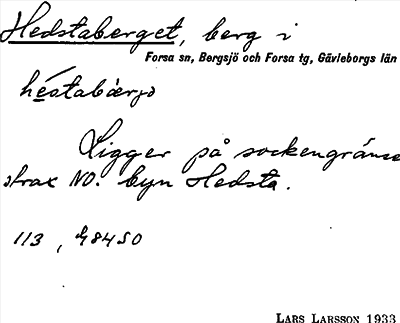 Hedstaberget, berg i
Forsa sn, Bergsjö och Forsa tg, Gävleborgs län
Ligger på sockengränsen
strax NO. byn Hedsta.
113,
LARS LARSSON 1933